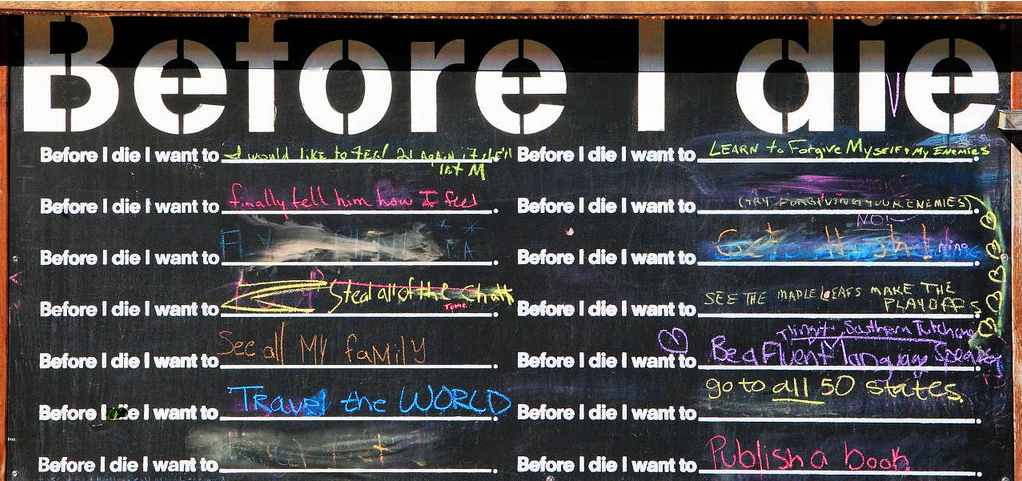 Before I die
Before I die I want to I would like to feel 21 Again
Before I die I want to finally tell him how I feel
Before I die I want to
Before I die I want to Steal all of the chalk
Before I die I want to See all My faMily
Before I die I want to Travel the WORLD
Before I die I want to
Before I die I want to LEARN to Forgive Myself + My ENEMIES
Before I die I want to (TRY FORGIVING YOUR ENEMIES)
NOW
Before I die I want to Get High!
Before I die I want to SEE THE MAPLE LEAFS MAKE THE
PLAYOFFS
Tlingit, Southern Tutchone
Before I die I want to Be a Fluent language Speaker
Before I die I want to go to all 50 states
Before I die I want to Publish a book